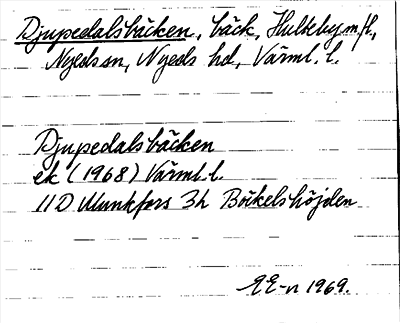 Djupedalsbäcken, bäck, Hulteby m.fl.,
Nyeds sn, Nyeds hd, Värml. l.
Djupedalsbäcken
ek (1968) Värml. l.
11D Munkfors 3h Böckelshöjden
EE-n 1969.